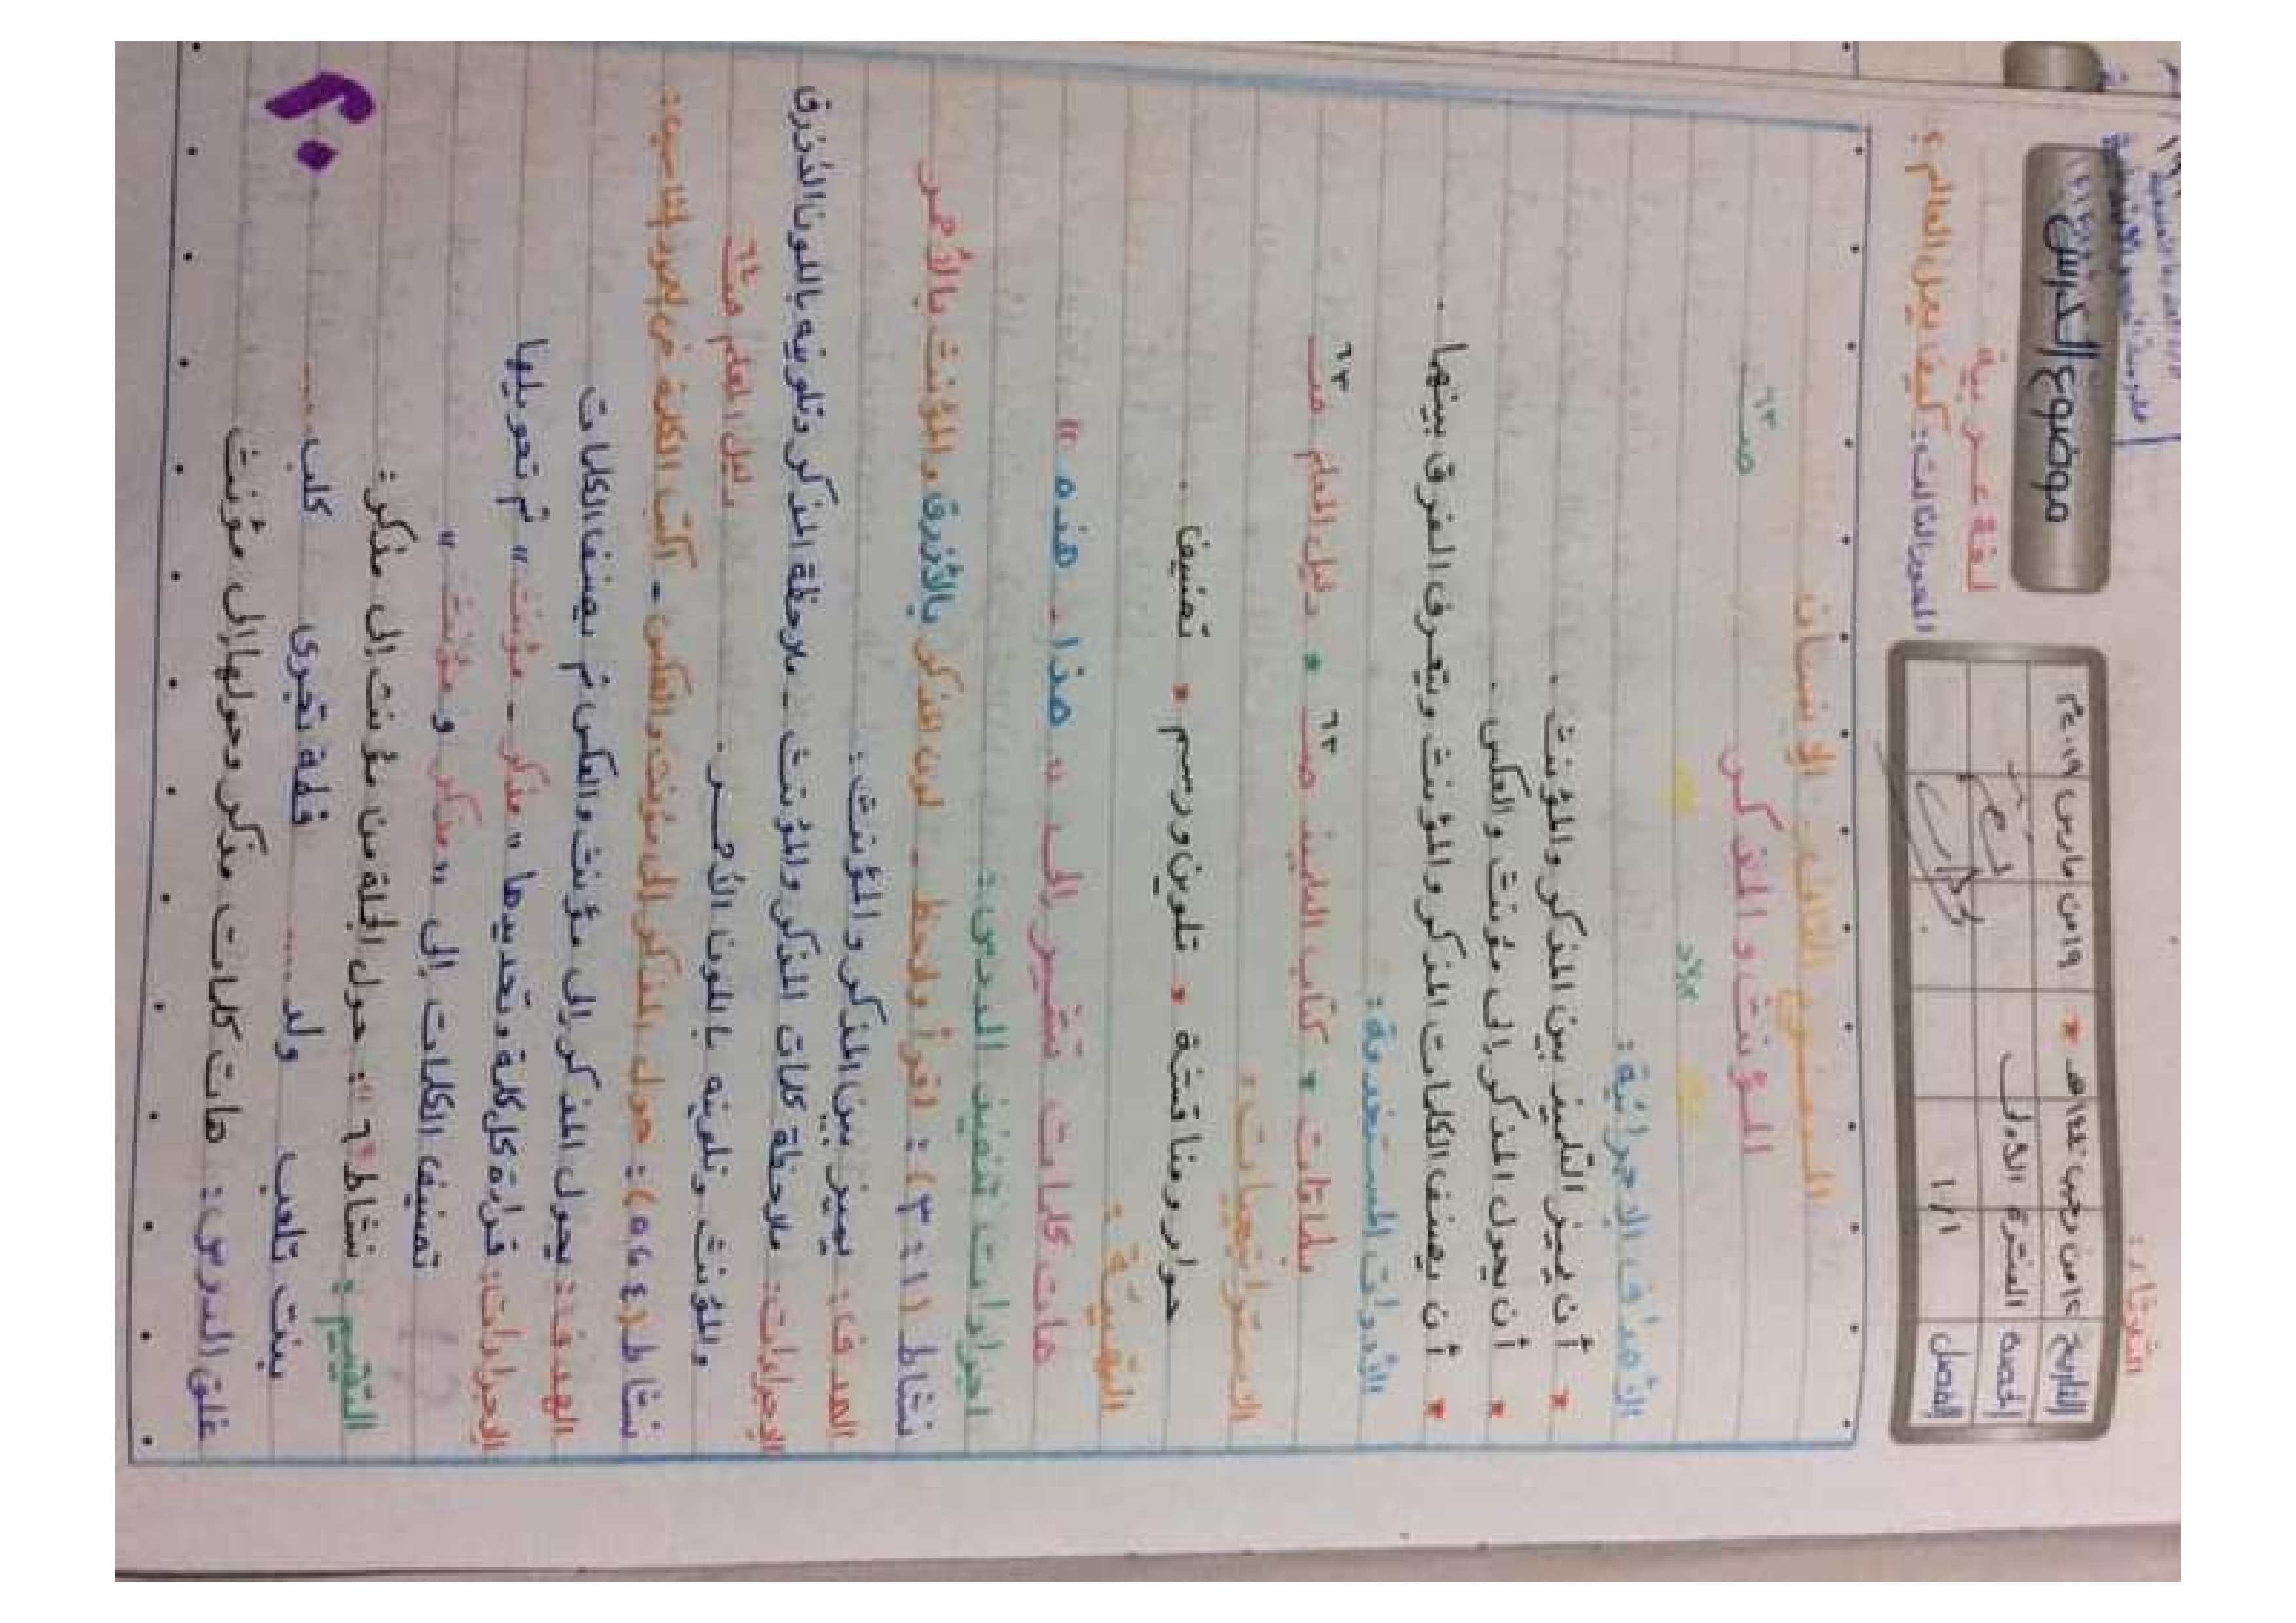 موضوع الدرس
لغة عربية
المحور الثالث: كيف يعمل العالم؟
التاريخ ١٢ من رجب ١٤٤٠هـ * ١٩ من مارس ٢٠١٩م
الحصة الفترة الأولى
الفصل ١/١
الإنسان
المؤنث والمذكر صـ ٦٣
الأهداف الإجرائية:
* أن يميز التلميذ بين المذكر والمؤنث.
* أن يحول المذكر إلى مؤنث والعكس.
* أن يصنف الكلمات المذكر والمؤنث ويتعرف الفرق بينهما.
الأدوات المستخدمة:
بطاقات * كتاب التلميذ صـ ٦٣ * دليل المعلم صـ ٦٣
الاستراتيجيات:
حوار ومناقشة * تلوين ورسم * تصنيف.
التهيئة:
هات كلمات تشير إلى " هذا - هذه "
إجراءات تنفيذ الدرس:
نشاط (١: ٣): اقرأ ولاحظ - لون المذكر بالأزرق والمؤنث بالأحمر
الهدف: يميز بين المذكر والمؤنث.
الإجراءات: ملاحظة كلمات المذكر والمؤنث - ملاحظة المذكر وتلوينه باللون الأزرق
والمؤنث وتلوينه باللون الأحمر. دليل المعلم صـ ٦٤
نشاط (٤، ٥): حول المذكر إلى مؤنث والعكس - اكتب الكلمة في الصورة المناسبة:
الهدف: يحول المذكر إلى مؤنث والعكس ثم يصنف الكلمات
الإجراءات: قراءة كل كلمة وتحديدها " مذكر - مؤنث " ثم تحويلها
تصنيف الكلمات إلى " مذكر و مؤنث "
التقييم: نشاط "٦": حول الجملة من مؤنث إلى مذكر:
بنت تلعب ولد ..... قطة تجري كلب .....
غلق الدرس: هات كلمات مذكر وحولها إلى مؤنث
٢٠